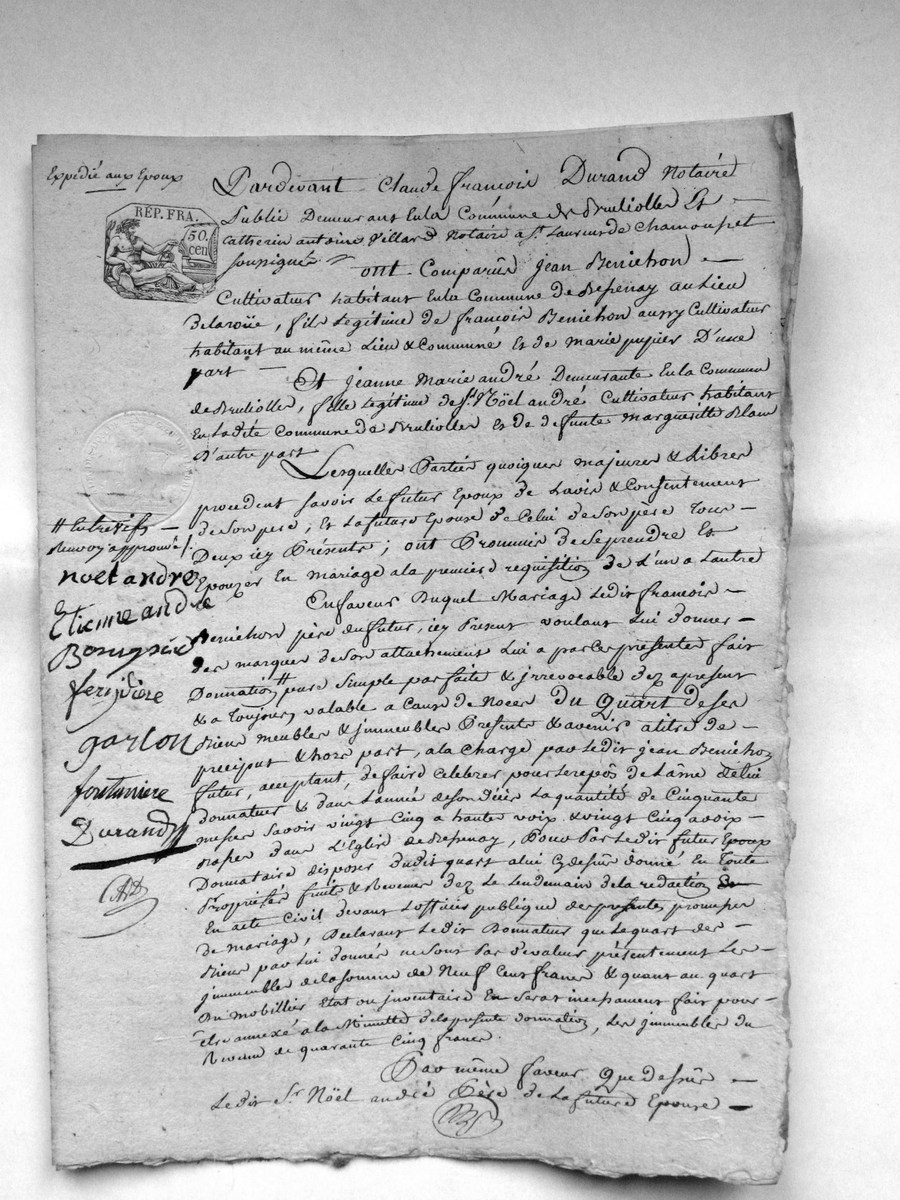 Expedié aux Epoux
REP. FRA.
50.
cen
Pardevant Claude françois Durand Notaire
Public Demeurant En la Commune de Bruliolles Et
Catherin antoine Villard Notaire a St. Laurent de Chamousset
soussignés ont Comparûs jean Benichon
Cultivateur habitant En la Commune de Besenay au Lieu
Delaroüe, fils Legitime de françois Benichon aussy Cultivateur
habitant au même Lieu & Commune Et de marie pupier D'une
part
Et jeanne Marie andré Demeurante En la Commune
de Bruliolles, fille Legitime de Sr. Nöel andré Cultivateur habitant
En Ladite Commune de Bruliolles Et de defunte margueritte Blanc
D'autre part
Lesquelles Parties quoique majeures & Libres
procedent savoir Le futur Epoux de Lavis & Consentement
de Son pere, Et La future Epouse de Celui de Son pere Tous
Deux icy Présents; ont Promis de Se prendre Et
Epouzer En mariage a la premiere requisition de L'un a Lautre
En faveur Duquel Mariage Ledit francois
Benichon père du futur, icy Present voulant Lui donner
des marques de Son attachement Lui a par Ces présentes fait
Donnation # pure Simple parfaite & irrevocable dez apresent
& a Toujours valable a Cause de Noces Du Quart de Ses
Biens meubles & immeubles Presents & avenir a titre de
preciput & hors part, a la Charge par Ledit jean Benichon
futur, acceptant, de faire Celebrer pour Le repôs de L'âme de lui
Donnateur & dans L'année de son décès La quantité de Cinquante
messes Savoir vingt Cinq a haute voix & vingt Cinq a voix
basse dans L'Eglise de Besenay, Pour Par Ledit futur Epoux
Donnataire disposer dudit quart a lui Cy dessus donné En Toute
Propriété fruits & Revenus dez Le Lendemain de la redaction
En acte Civil devant Lofficier publique des presentes promesses
de mariage, Declarant Ledit Donnateur que Le quart des
Biens par Lui donnés ne Sont Pas de valeur présentement Les
immeubles de la somme de Neuf Cent francs & quant au quart
Du mobillier Etat ou inventaire En Serat incessament fait pour
Etre annexé a la Minutte de la presente donnation, Les immeubles du
Revenu de quarante Cinq francs.
Par même faveur Que dessûs
Ledit Sr. Nöel andré Père de La future Epouse
# Entrevifs
Renvoy approuvé
noël andre
Etienne andre
ferriviere
garlon
fontaniere
Durand